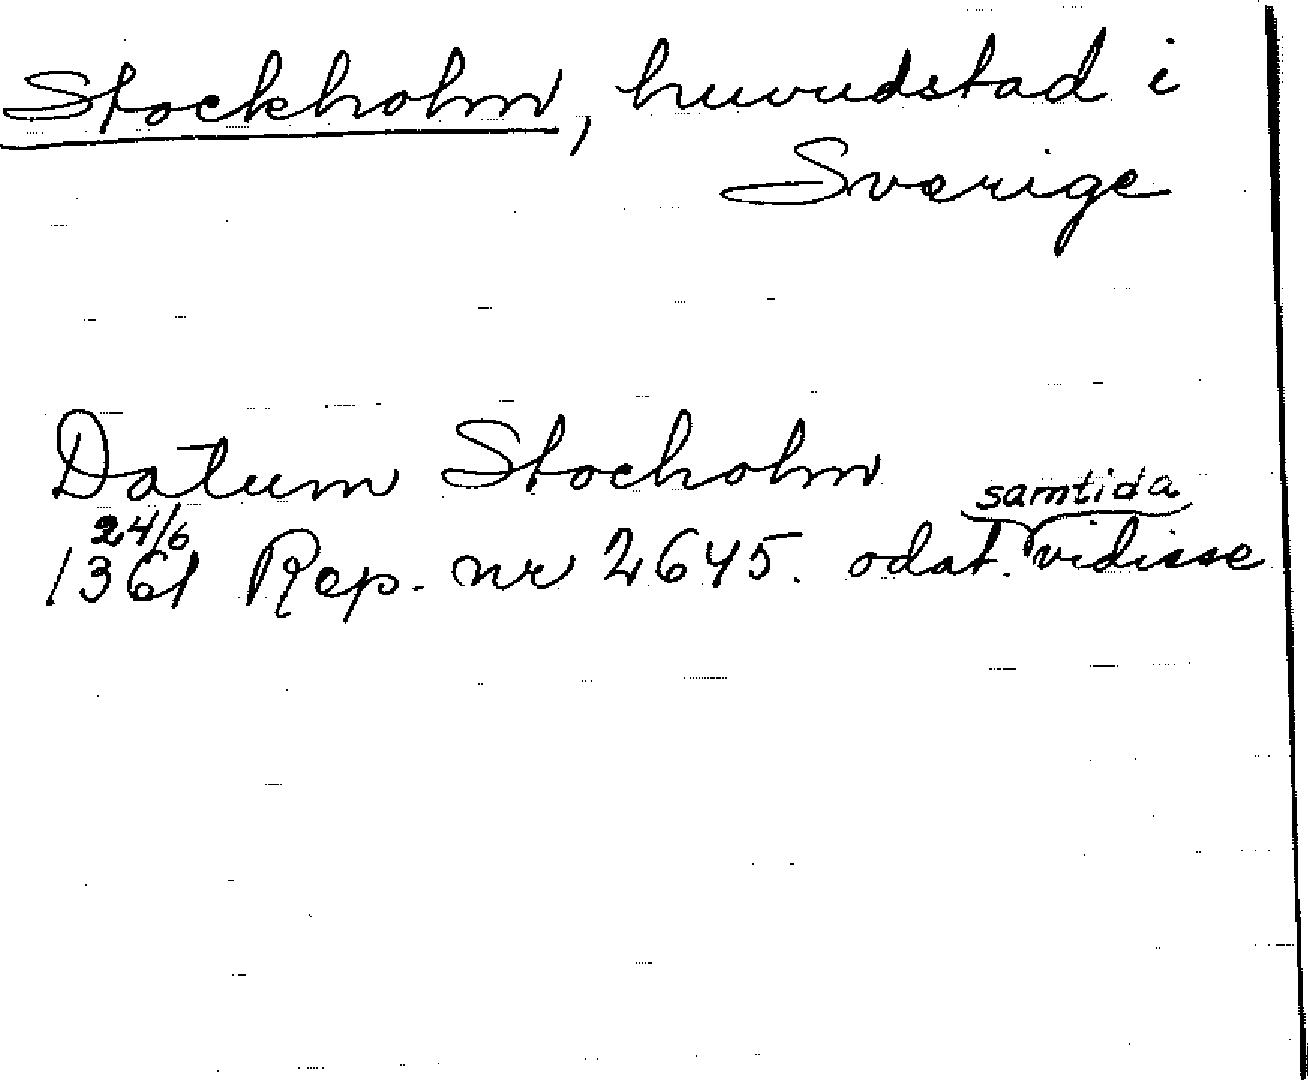 Stockholm, huvudstad i
Sverige
Datum Stocholm
samtida
24/6
1361 Rep. nr 2645. odat. vidisse